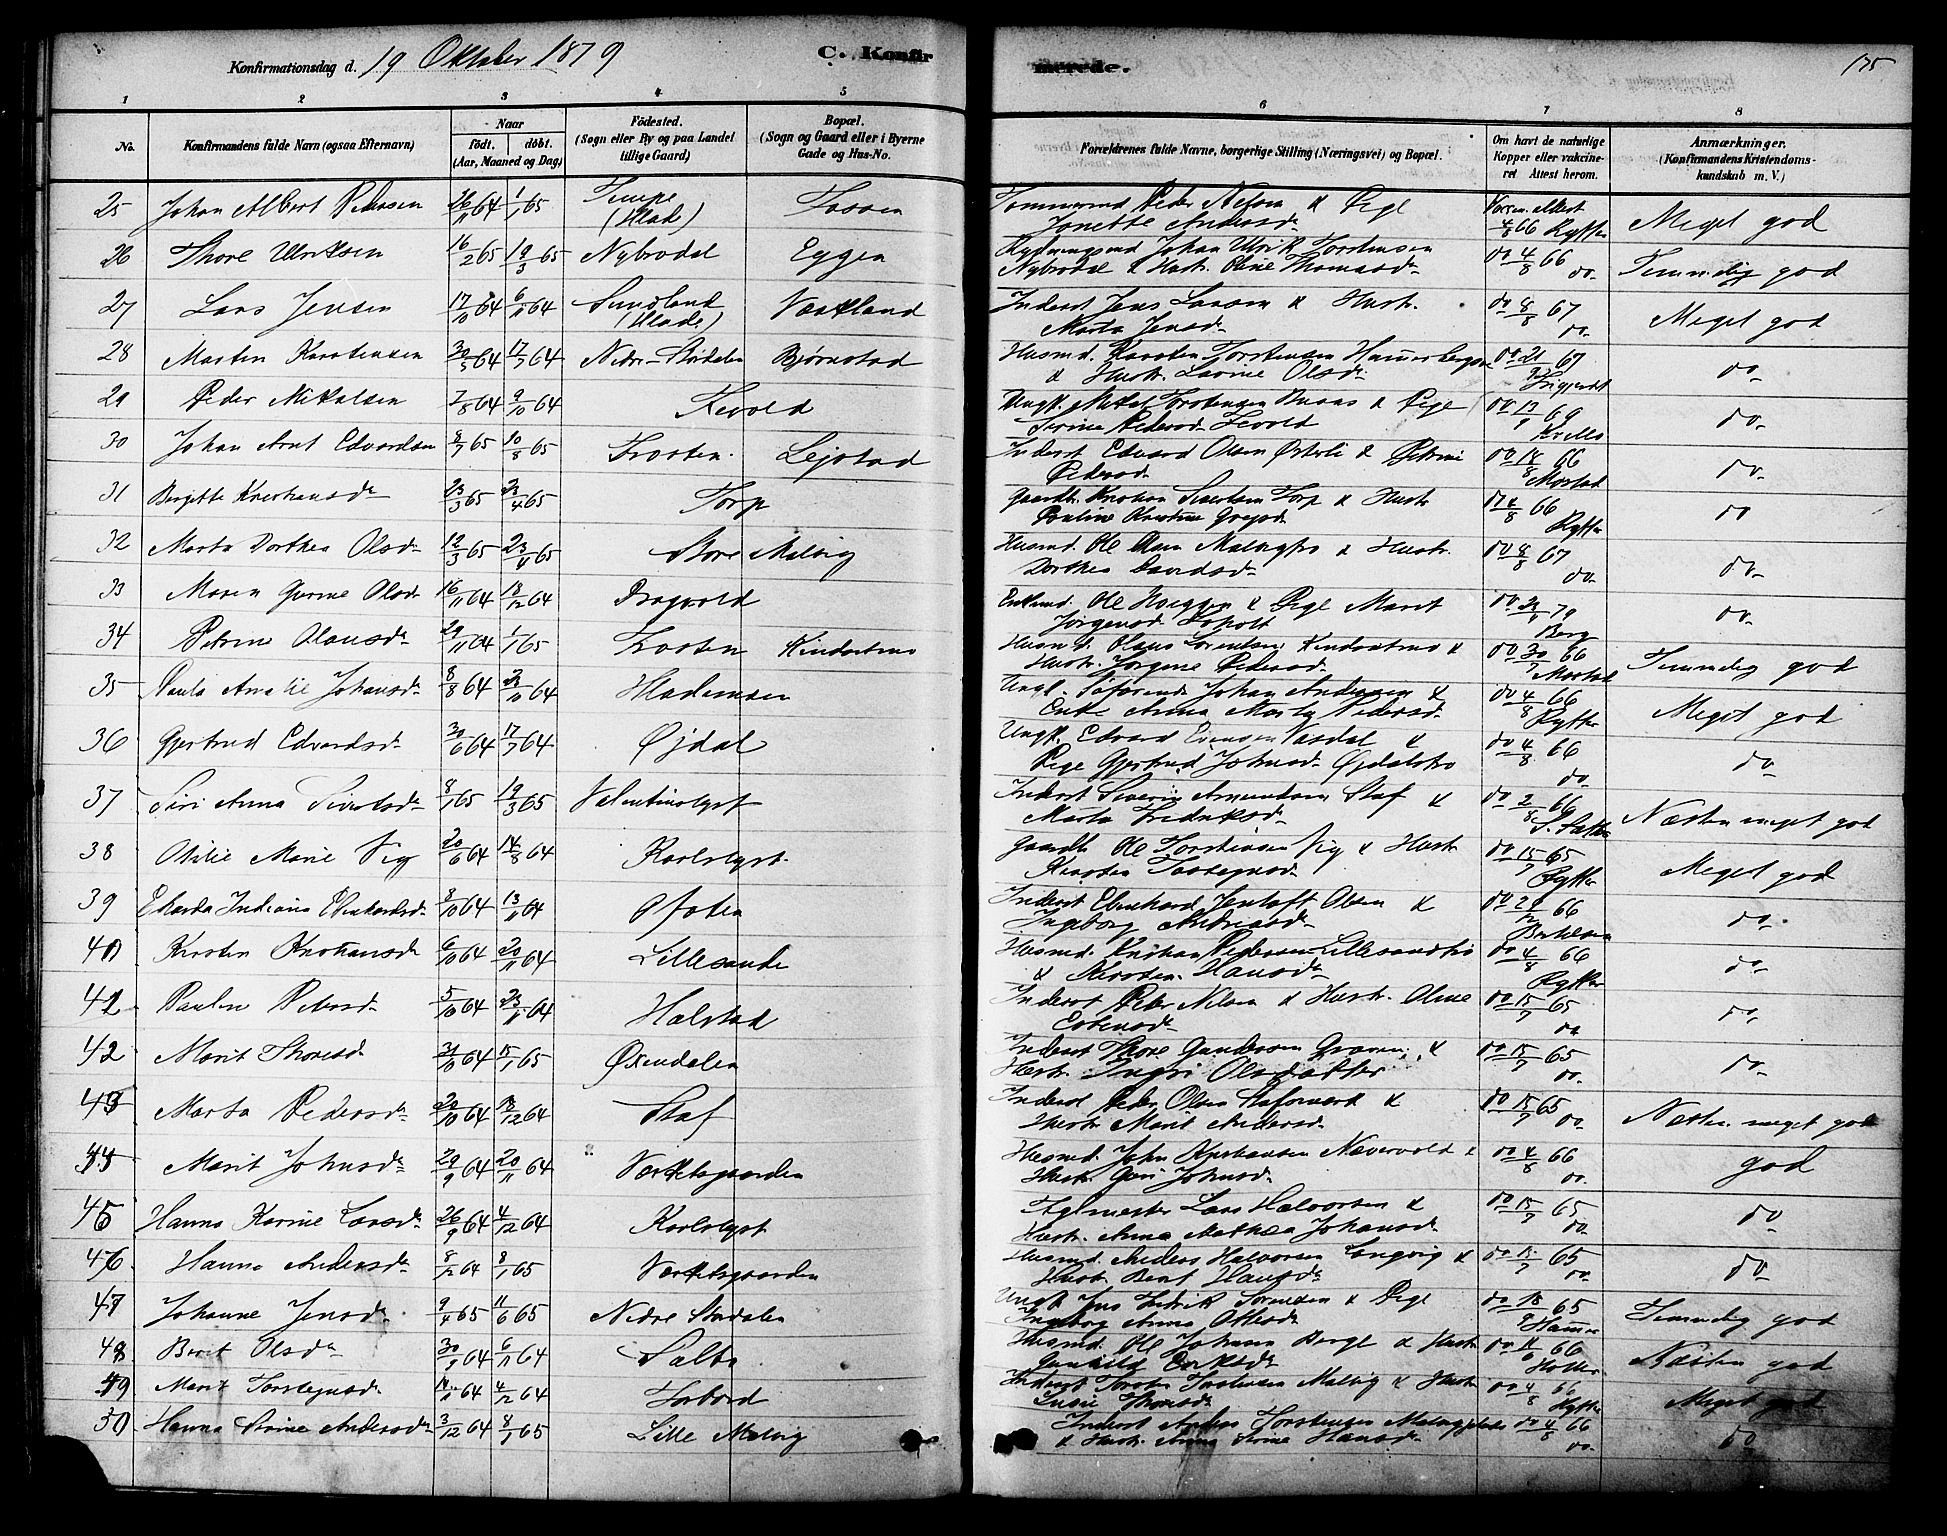 Konfirmationsdag d. 19 Oktober 1879
C. Konfirmerede.
175
1 2 3 4 5 6 7 8
No.
Konfirmandens fulde Navn (ogsaa Efternavn)
Naar
født. døbt.
(Aar, Maaned og Dag)
Födested.
(Sogn eller By og paa Landet
tillige Gaard)
Bopæl.
(Sogn og Gaard eller i Byerne
Gade og Hus-No.
Forældrenes fulde Navne, borgerlige Stilling (Næringsvei) og Bopæl.
Om havt de naturlige
Kopper eller vakcine-
ret Attest herom.
Anmærkninger.
(Konfirmandens Kristendoms-
kundskab m. V.)
25 Johan Albert Pedersen 26/11 64 1/1 65 Tempe (Hlade) Tossen
Tømmermd Peder Nilsen & Pige Jonette Andersd. Vaccin. Attest 4/8 66 Rytter Meget god
26 Thore Ulriksen 16/2 65 19/3 65 Nybrodal Eggen
Rydningsmd Johan Ulrik Torstensen Nybrodal & Hustr. Oline Thomasd. do 4/8 66 do Temmelig god
27 Lars Jensen 17/10 64 6/11 64 Sundland (Hlade) Væstland
Inderst Jens Larsen & Hustr. Marta Jensd. do 8/8 67 do. Meget god
28 Morten Karstensen 30/5 64 17/7 64 Nedre Størdalen Bjørnstad
Husmd. Karsten Torstensen & Hustr. Lovise Olsd. do 21 67 do.
29 Peder Mikalsen 7/8 64 9/10 64 Fevold
Ungk. Mikal Torstensen Buaas & Pige Serine Pedersd. Fevold do 13 69 do.
30 Johan Arnt Edvardsen 8/7 65 10/8 65 Frosten. Lejstad
Inderst Edvard Olsen Østerli & Petrine Pedersd. do 18/8 66 Morstad do.
31 Bergitte Kristiansd. 23/3 65 23/4 65 Torp
Gaardb. Kristian Sivertsen Torp & Hustr. Pauline Kristine do 4/8 66 Rytter do
32 Marta Dorthea Olsd. 12/3 65 23/4 65 Store Malvig
Husmd. Ole Olsen & Hustr. Dorthea Davidsd. do 8/8 67 do. do.
33 Maren Gurine Olsd. 16/11 64 18/12 64 Dragvold
Enkemd. Ole & Pige Marit Jørgensd. do 79 Berg do.
34 Petrine Olausd. 29/11 64 1/1 65 Frosten Kindsetmo
Husmd. Olaus Lorentsen & Hustr. Jørgine Pedersd. do 30/7 66 Morstad Temmelig god
35 Paula Amalie Johansd. 8/8 64 23/10 64 Hlademoen
Ungk. Søfarende Johan Andersen & Enke Anna Marta Pedersd. do 4/8 66 Rytter Meget god
36 Gjertrud Edvardsd. 30/6 64 17/7 64 Øjdal
Ungk. Edvard Evensen Vasdal & Pige Gjertrud Johnsd. Øjdalstrø do 4/8 66 do do
37 Siri Anna Sivertsd. 8/1 65 19/3 65 Valentinslyst
Inderst Severin Amundsen Staf & Marta Fredriksd. do 2/8 66 Næsten meget god
38 Otilie Marie Vig 20/6 64 14/8 64 Karlslyst.
Gaardb. Ole Torstensen Vig & Hustr. Kirsten do 15/7 65 Rytter Meget god
39 Indiana Ebenhardsd. 8/10 64 13/11 64 Ofoten
Inderst Ebenhard Jentoft Olsen & Ingeborg Andreasd. do 21/12 66 do.
40 Kirsten Kristiansd. 6/10 64 20/11 64 Lillesande
Husmd. Kristian Pedersen Lillesandtrø & Kirsten Hansd. do 4/8 66 Rytter do.
41 Pauline Petersd. 5/10 64 23/11 64 Halstad
Inderst Peter Nilsen & Hustr. Oline Esbensd. do 15/7 65 do do.
42 Marit Thoresd. 21/10 64 15/1 65 Øxendalen
Inderst Thore Gundersen & Hustr. Ingri Olsdatter do 15/7 65 do. do.
43 Marta Pedersd. 20/10 64 18/12 64 Staf
Inderst Peder Olsen & Hustr. Marit Andersd. do 15/7 65 do. Næsten meget god
44 Marit Johnsd. 29/9 64 20/11 64 Værketsgaarden
Husmd. John Kristiansen Nævervold & Hustr. Guri Johnsd. do 4/8 66 do. god
45 Hanna Karine Larsd. 26/9 64 4/12 64 Karlslyst
Lars Halvorsen & Hustr. Anna Mathea Johansd. do 15/7 65 do. do
46 Hanna Andersd. 8/12 64 8/1 65 Værketsgaarden
Husmd. Anders Halvorsen Langvig & Hustr. Berit Hansd. do 15/7 65 do. do
47 Johanne Jensd. 9/4 65 11/6 65 Nedre Stordalen
Ungk. Jens Fredrik Sørensen & Pige Ingeborg Anna Ottesd. do 18/9 65 Hammer Temmelig god
48 Berit Olsd. 30/9 64 6/11 64 Salbo
Husmd. Ole Johnsen Berge & Hustr. Gunhild do 11 66 Næsten god
49 Marit Torstensd. 64 4/12 64 Forbord
Inderst Torsten Torstensen Malvig & Hustr. do 4/8 66 Rytter Meget god
50 Hanna Serine Andersd. 3/12 64 8/1 65 Lille Malvig
Inderst Anders Torstensen & Hustr. Anna Serine Hansd. do 4/8 66 do. do